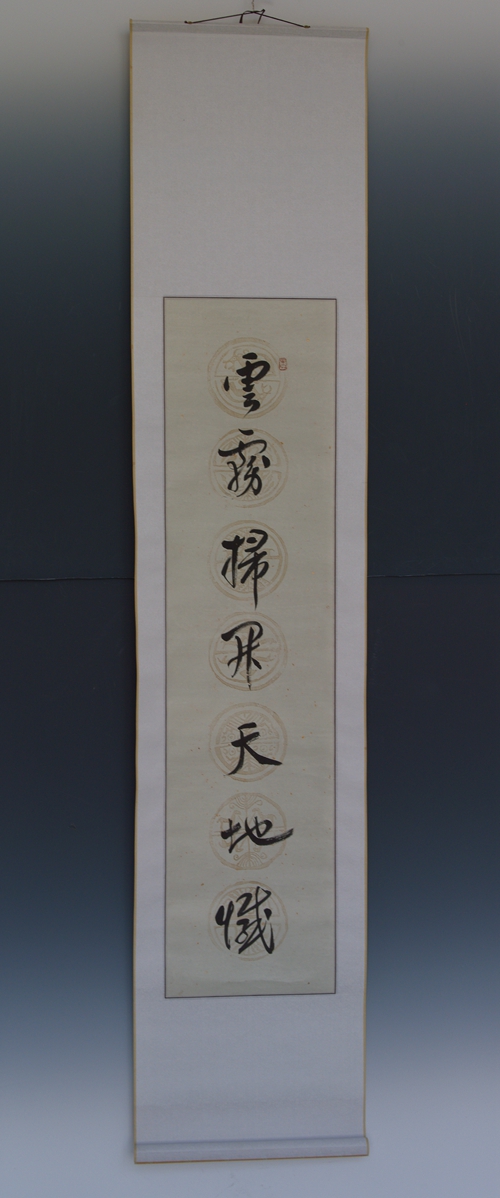 雲霧掃開天地憾